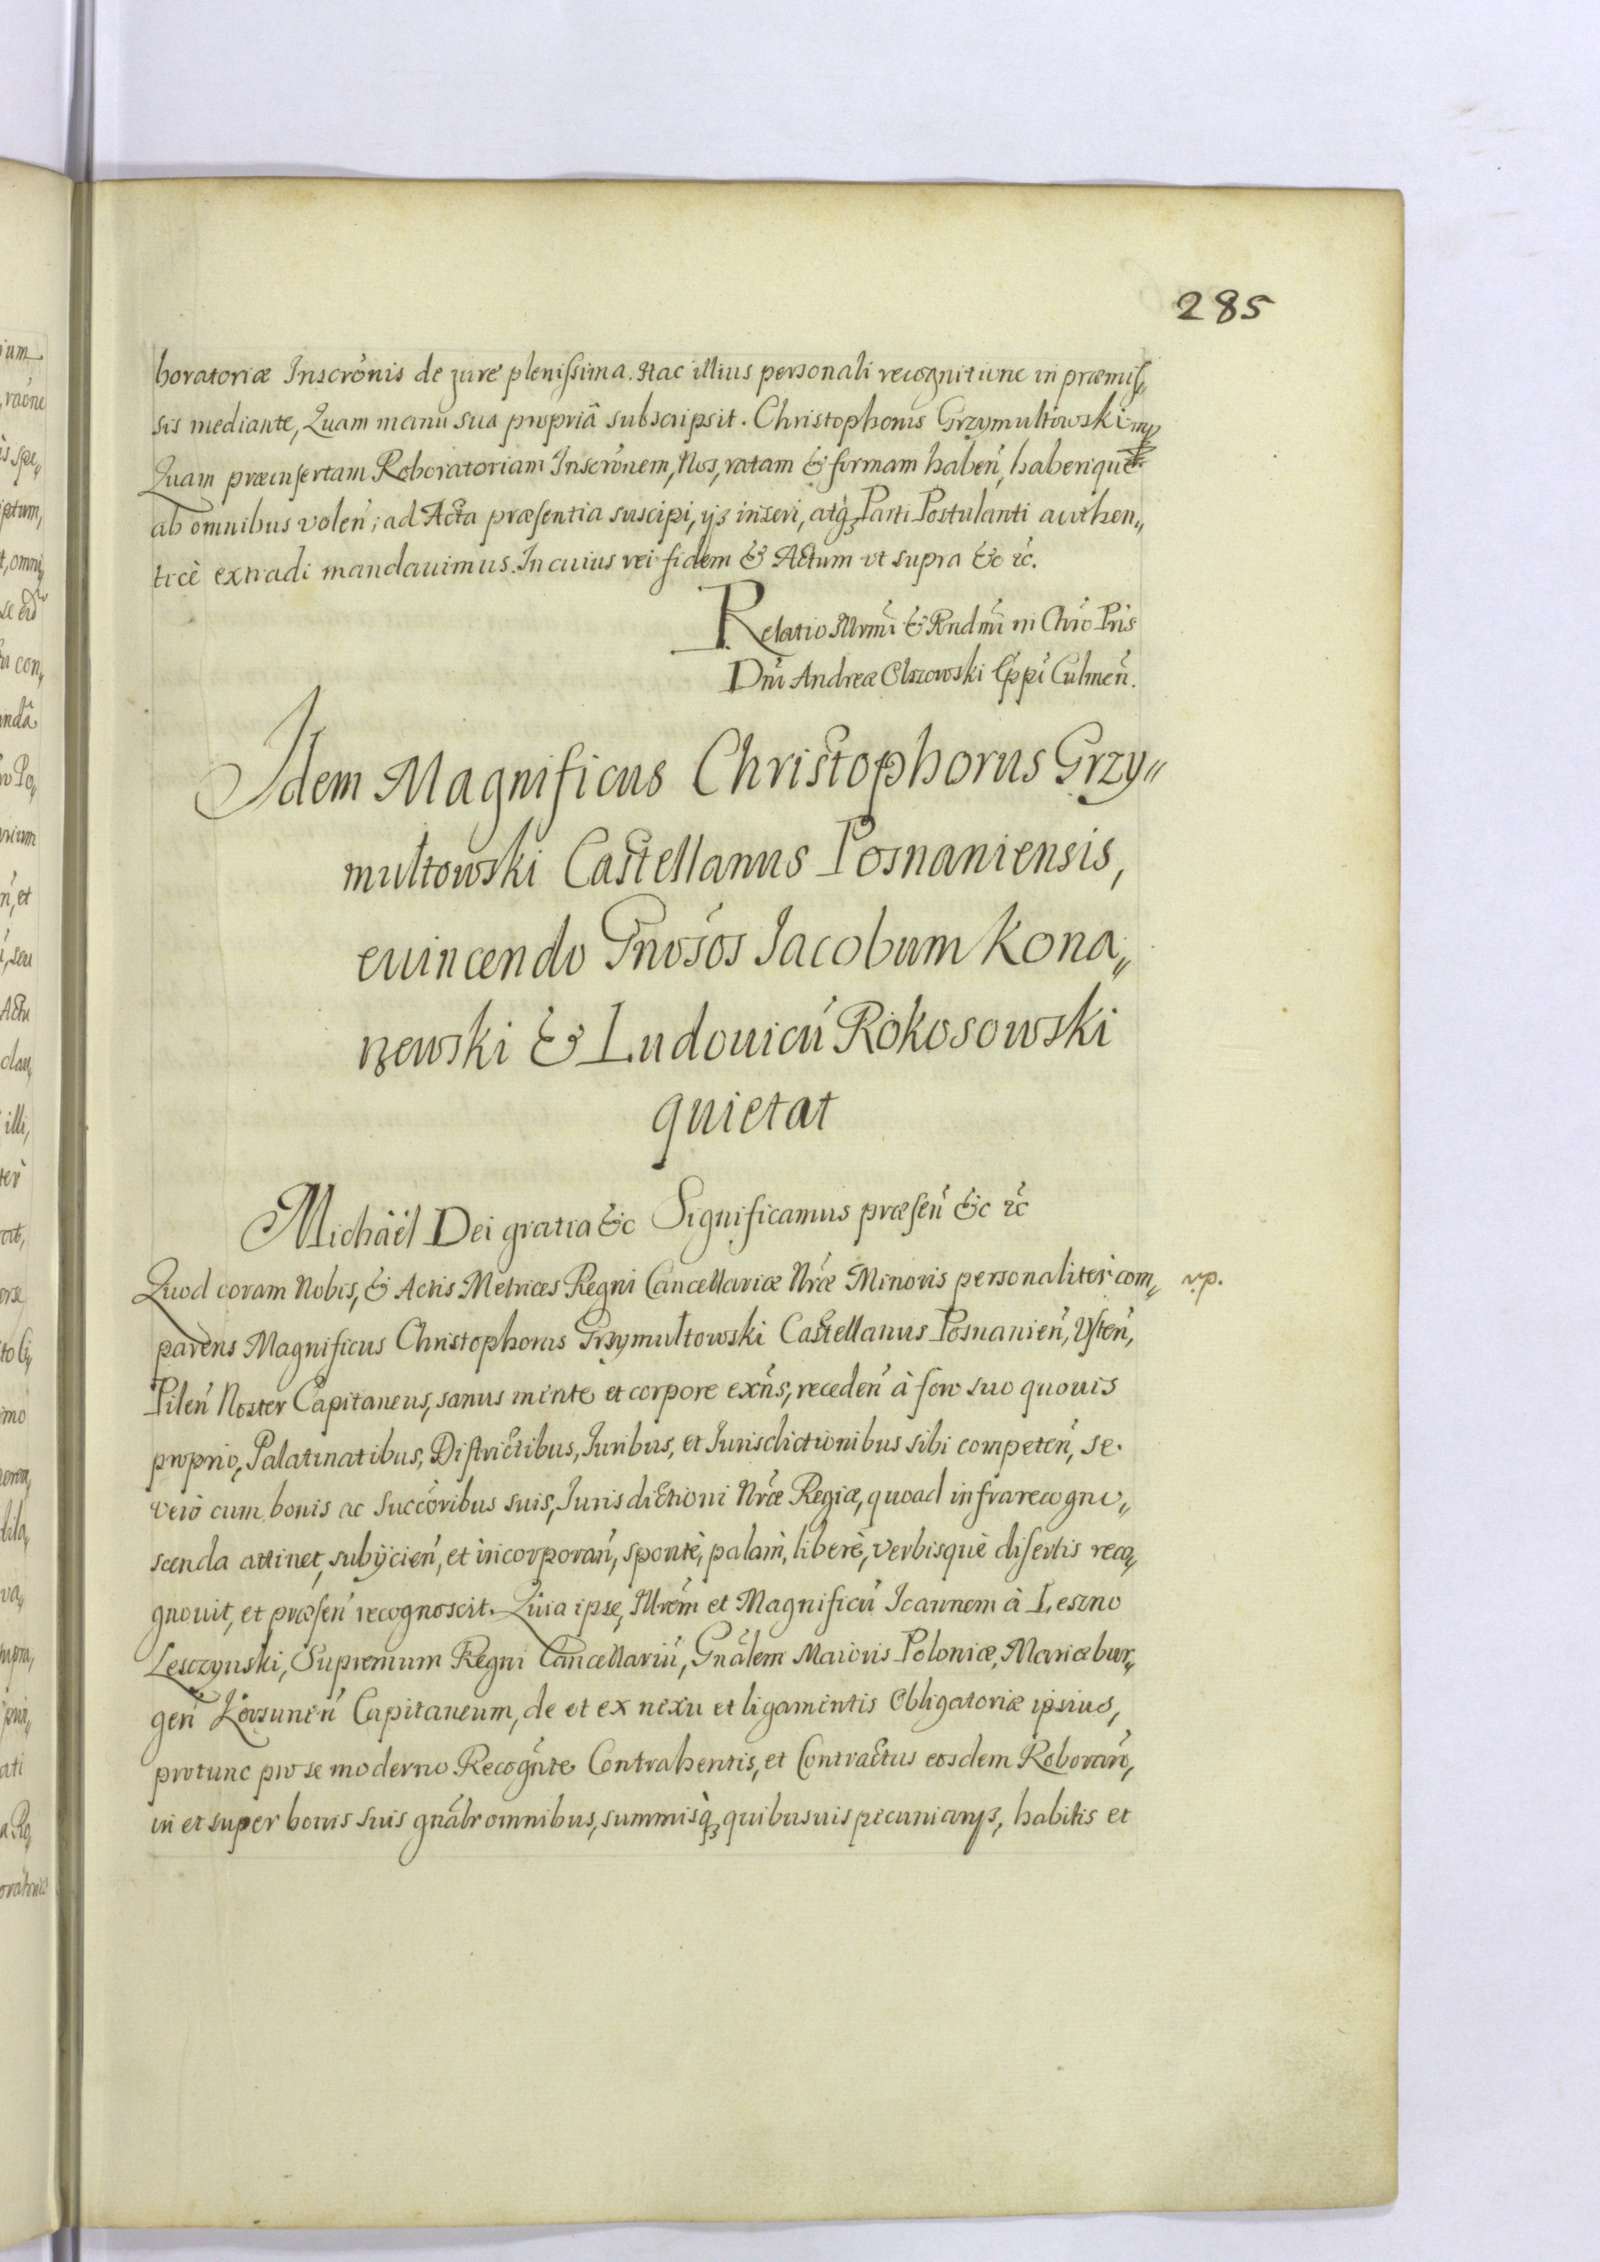 285
boratoriæ Inscrōnis de jure plenissima. Hac illius personali recognitione in præmis„
sis mediante, Quam manu sua propriâ subscripsit. Christophorus Grzymułtowski mp
Quam præinsertam Roboratoriam Inscrōnem, Nos, ratam & firmam habeń, haberique
ab omnibus voleń; ad Acta præsentia suscipi, ijs inseri, atq3 Parti Postulanti authen„
ticè extradi mandauimus. In cuius rei fidem & Actum vt supra &c rc.
Relatio Illrmi & Rndmi in Chro Pris
Dni Andreæ Olszowski Eppi Culmeń.
Idem Magnificus Christophorus Grzy„
mułtowski Castellanus Posnaniensis,
euincendo Gnosos Jacobum Kona„
rzewski & Ludouicú Rokosowski
quietat
Michäel Dei gratia &c Significamus præseń &c rc
Quod coram Nobis, & Actis Metrices Regni Cancellariæ Nræ Minoris personaliter com„ rp.
parens Magnificus Christophorus Grzymułtowski Castellanus Posnanień, Vsteń,
Pileń Noster Capitaneus, sanus mente et corpore exńs, recedeń à foro suo quouis
proprio, Palatinatibus, Districtibus, Iuribus, et Iurisdictionibus sibi competeń, se
verò cum bonis ac succōribus suis, Iurisdictioni Nræ Regiæ, quoad infrarecogno„
scenda attinet, subijcień, et incorporań, spontè, palàm, liberè, verbisquè disertis reco„
gnouit, et præseń recognoscit. Quia ipse, Illrem et Magnificú Ioannem à Leszno
Lesczynski, Supremum Regni Cancellariú, Gnālem Maioris Poloniæ, Mariæbur„
geń Korsuneń Capitaneum, de et ex nexu et ligamentis Obligatoriæ ipsius,
protunc pro se moderno Recogńte Contrahentis, et Contractus eosdem Roborań,
in et super bonis suis gnālr omnibus, summisq3 quibusuis pecuniarijs, habitis et